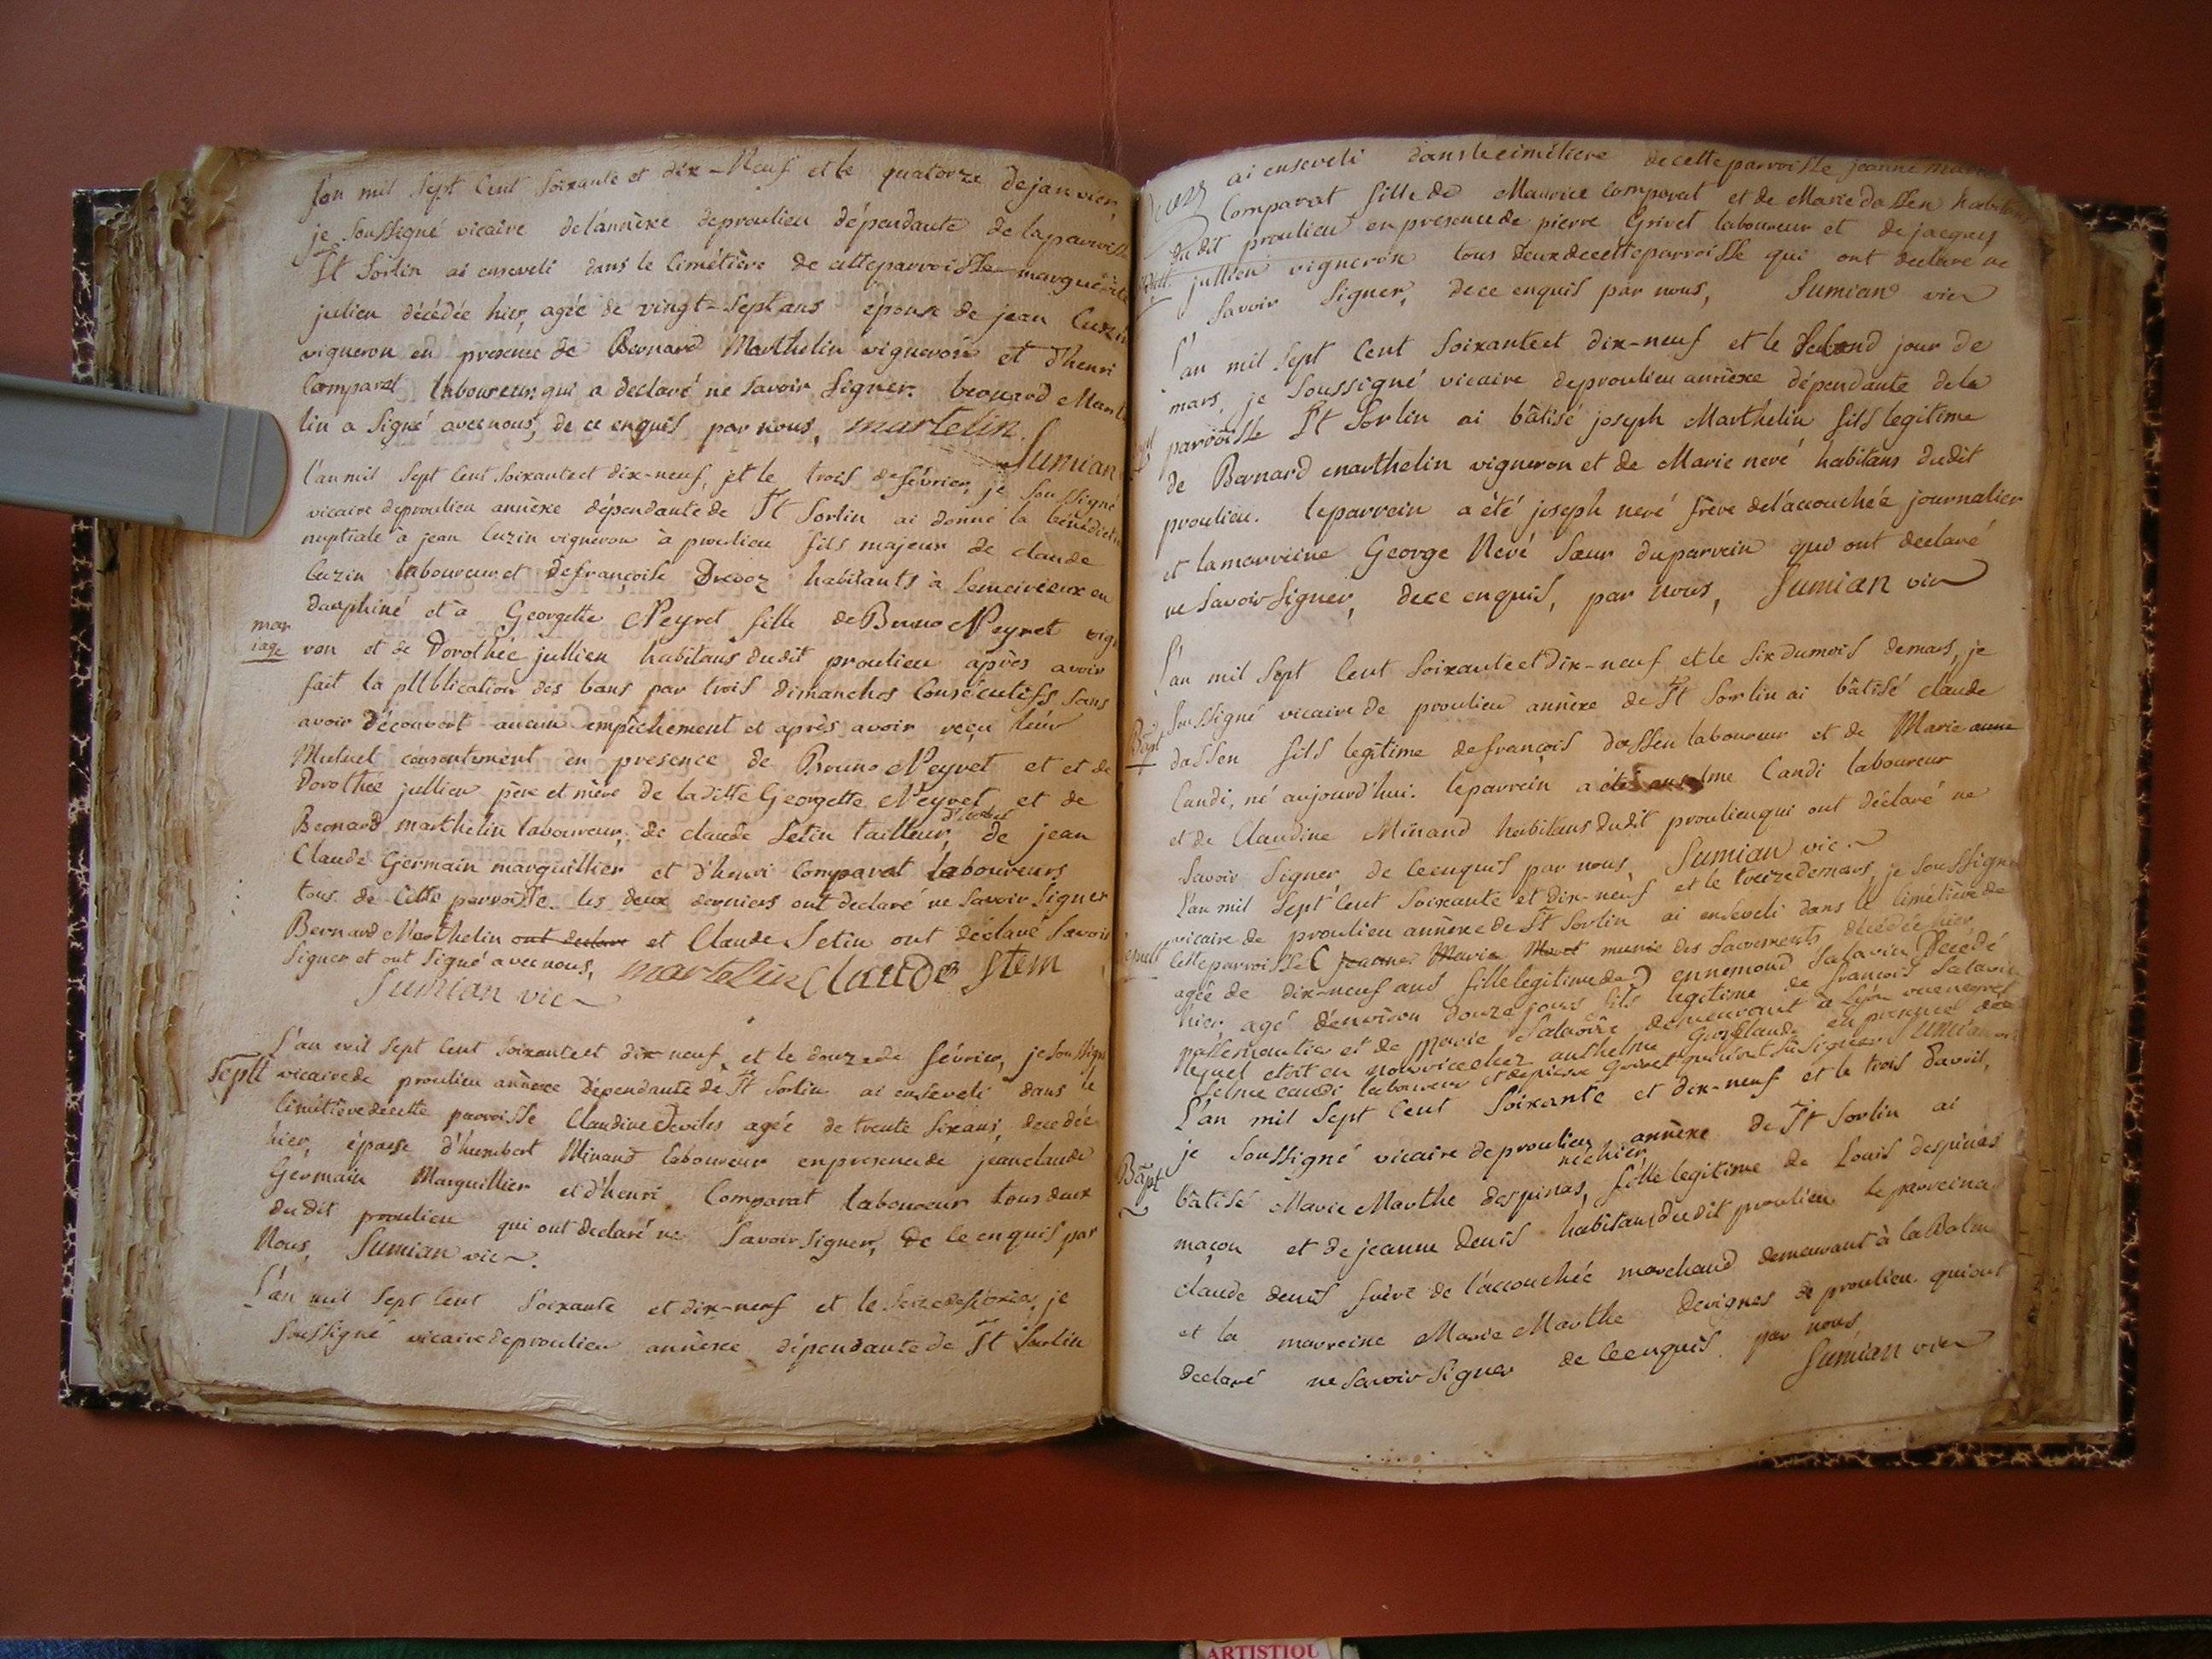 l'an mil Sept Cent Soixante et dix-Neuf et le quatorze de janvier,
je Soussigné vicaire de l'annèxe de proulieu dépendante de la parroisse
St Sorlin ai enseveli dans le cimétière de cette parroisse marguerite
julien décédée hier, agée de vingt-Sept ans épouse de jean Cuzin
vigneron en presence de Bernard Marthelin vigneron et d'henri
Comparat laboureur qui a declaré ne Savoir Signer. bernard Marthe
lin a Signé avec nous, de ce enquis par nous, martelin
Sumian
l'an mil Sept Cent Soixante et dix-neuf, et le trois de février, je Soussigné
vicaire de proulieu annèxe dépendante de St Sorlin ai donné la bénédiction
nuptiale à jean Cuzin vigneron à proulieu fils majeur de claude
Cuzin laboureur et de françoise Drevoz habitants à Lemeirieux en
dauphiné et à Georgette Neyret fille de Bruno Neyret vig
mar
iage
ron et de Dorothée jullien habitans dudit proulieu après avoir
fait la pUblication des bans par trois dimanches Consécutifs Sans
avoir découvert aucun empêchement et après avoir reçu leur
Mutuel consentement en presence de Bruno Neyret et et de
Dorothée jullien père et mère de laditte Georgette Neyret et de
Bernard marthelin laboureur, de claude Setin tailleur, de jean
Claude Germain marguillier et d'henri Comparat laboureurs
tous de Cette parroisse. les deux derniers ont declaré ne Savoir Signer
Bernard Marthelin ont declaré et Claude Setin ont déclaré Savoir
Signer et ont Signé avec nous, martelin Claude Stein
Sumian vic
L'an mil Sept Cent Soixante et dix neuf et le douze de février, je Soussigné
Sepult
vicaire de proulieu annèxe dépendante de St Sorlin ai enseveli dans le
Cimétière de cette parroisse Claudine Deviles agée de trente Six ans, decedée
hier, épouse d'humbert Minand laboureur en presence de jean claude
Germain Marguillier et d'henri Comparat laboureur tous deux
dudit proulieu qui ont declaré ne Savoir Signer, de Ce enquis par
Nous, Sumian vic.
L'an mil Sept Cent Soixante et dix-neuf et le Seize de février, je
Soussigné vicaire de proulieu annèxe dépendante de St Sorlin
ai enseveli dans le cimétiere de cette parroisse jeanne
Comparat fille de Maurice Comparat et de Marie dassen habitans
du dit proulieu en presence de pierre Grivet laboureur et de jacques
jullien vigneron tous deux de cette parroisse qui ont declaré ne
Savoir Signer, de ce enquis par nous, Sumian vic
L'an mil Sept Cent Soixante et dix-neuf et le Second jour de
mars, je Soussigné vicaire de proulieu annèxe dépendante de la
parroisse St Sorlin ai bâtisé joseph Marthelin fils legitime
de Bernard marthelin vigneron et de Marie neré habitans dudit
proulieu. le parrein a été joseph neré frère de l'accouchée journalier
et la marreine George Neré Sœur du parrein qui ont declaré
ne Savoir Signer, de ce enquis, par nous, Sumian vic
L'an mil Sept Cent Soixante et dix-neuf et le Six du mois de mars, je
Soussigné vicaire de proulieu annèxe de St Sorlin ai bâtisé claude
Bapt
dassen fils legitime de françois dassen laboureur et de Marie anne
Candi, né aujourd'hui. le parrein a été anselme Candi laboureur
et de Claudine Minand habitans dudit proulieu qui ont déclaré ne
Savoir Signer, de Ce enquis par nous, Sumian vic
L'an mil Sept Cent Soixante et dix-neuf et le treize de mars, je Soussigné
vicaire de proulieu annèxe de St Sorlin ai enseveli dans le cimétière de
Sepult
Cette parroisse ( jeanne Marie munie des Sacrements décédée hier,
agée de dix-neuf ans fille legitime de ) ennemond Salavin Décédé
hier agé d'environ douze jours fils legitime de françois Salavin
passementier et de Marie demeurant à Lyon
lequel etoit en nourrice chez anthelme Grosclaude en presence
Selme candi laboureur et de pierre Grivet Signer Sumian vic
L'an mil Sept Cent Soixante et dix-neuf et le trois d'avril,
je Soussigné vicaire de proulieu annèxe de St Sorlin ai
Bapt
née hier,
bâtisé Marie Marthe despinas, fille legitime de Louis despinas
maçon et de jeanne Denis habitans dudit proulieu le parrein a
claude denis frère de l'accouchée marchand demeurant à la Balme
et la marreine Marie Marthe Devignes de proulieu. qui ont
declaré ne Savoir Signer de Ce enquis par nous
Sumian vic
ARTISTIQU